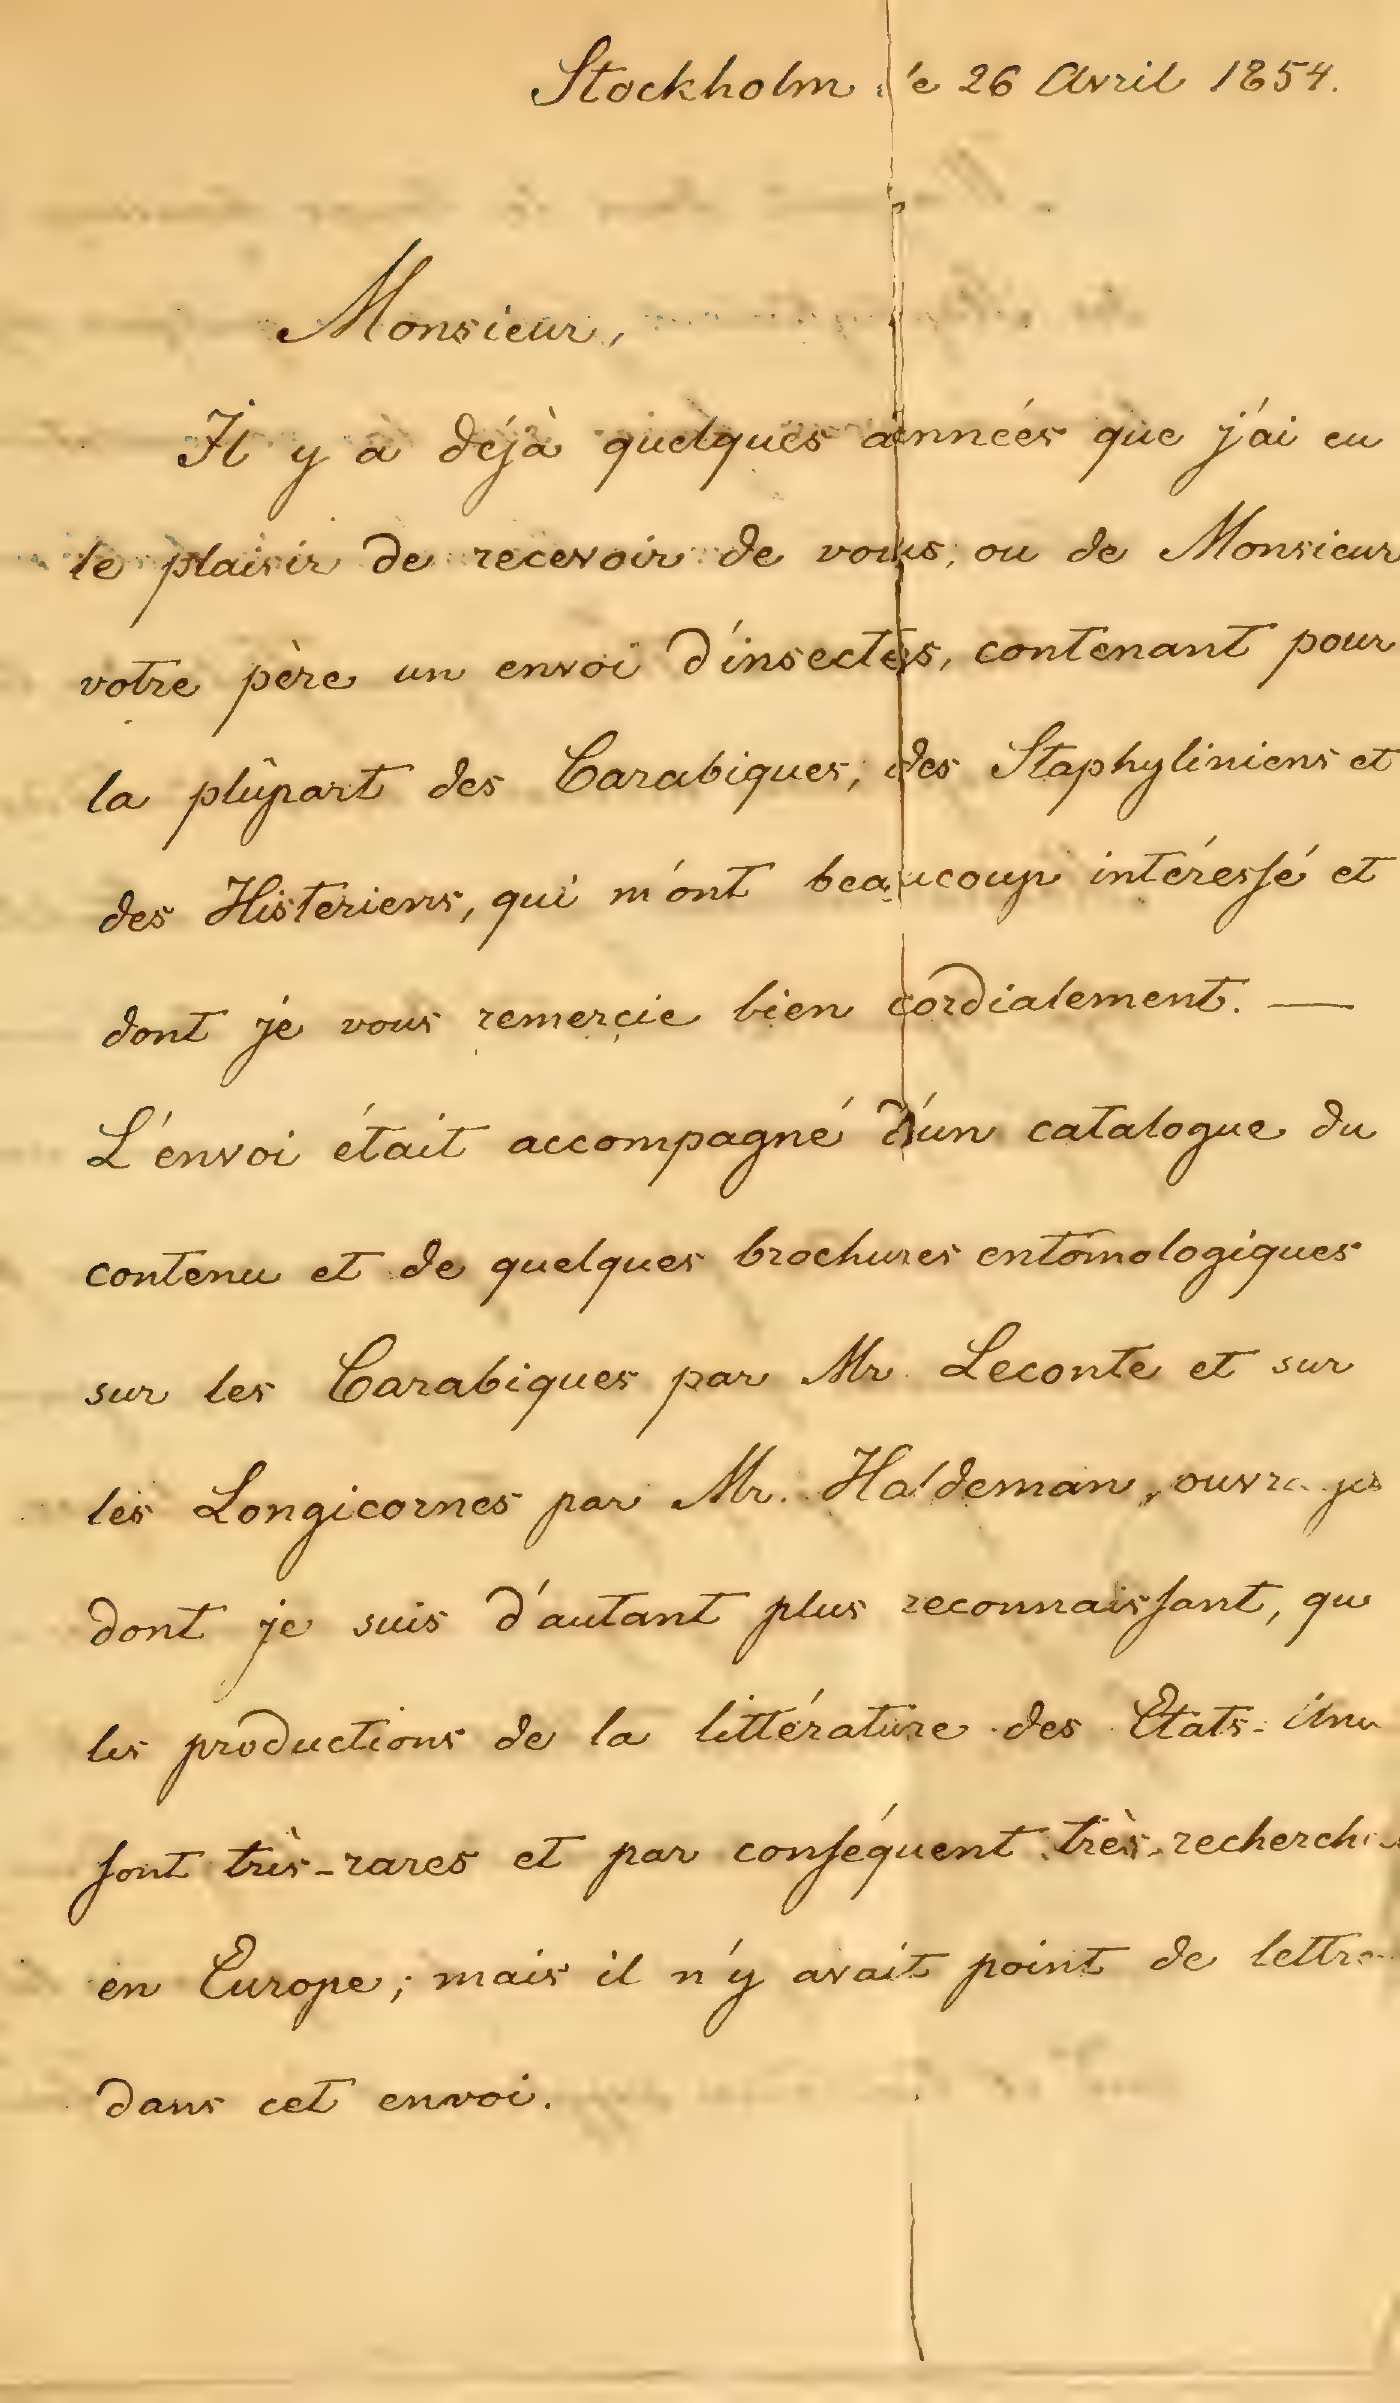 Stockholm le 26 Avril 1854.
Monsieur,
Il y à déjà quelques années que j'ai eu
le plaisir de recevoir de vous, ou de Monsieur
votre père un envoi d'insectes, contenant pour
la plûpart des Carabiques, des Staphyliniens et
des Histeriens, qui m'ont beaucoup intéressé et
dont je vous remerçie bien cordialement. —
L'envoi était accompagné d'un catalogue du
contenu et de quelques brochures entomologiques
sur les Carabiques par Mr. Leconte et sur
les Longicornes par Mr. Haldeman, ouvrages
dont je suis d'autant plus reconnaissant, que
les productions de la littérature des Etats-Unis
sont très-rares et par conséquent très-recherchées
en Europe; mais il n'y avait point de lettre
dans cet envoi.